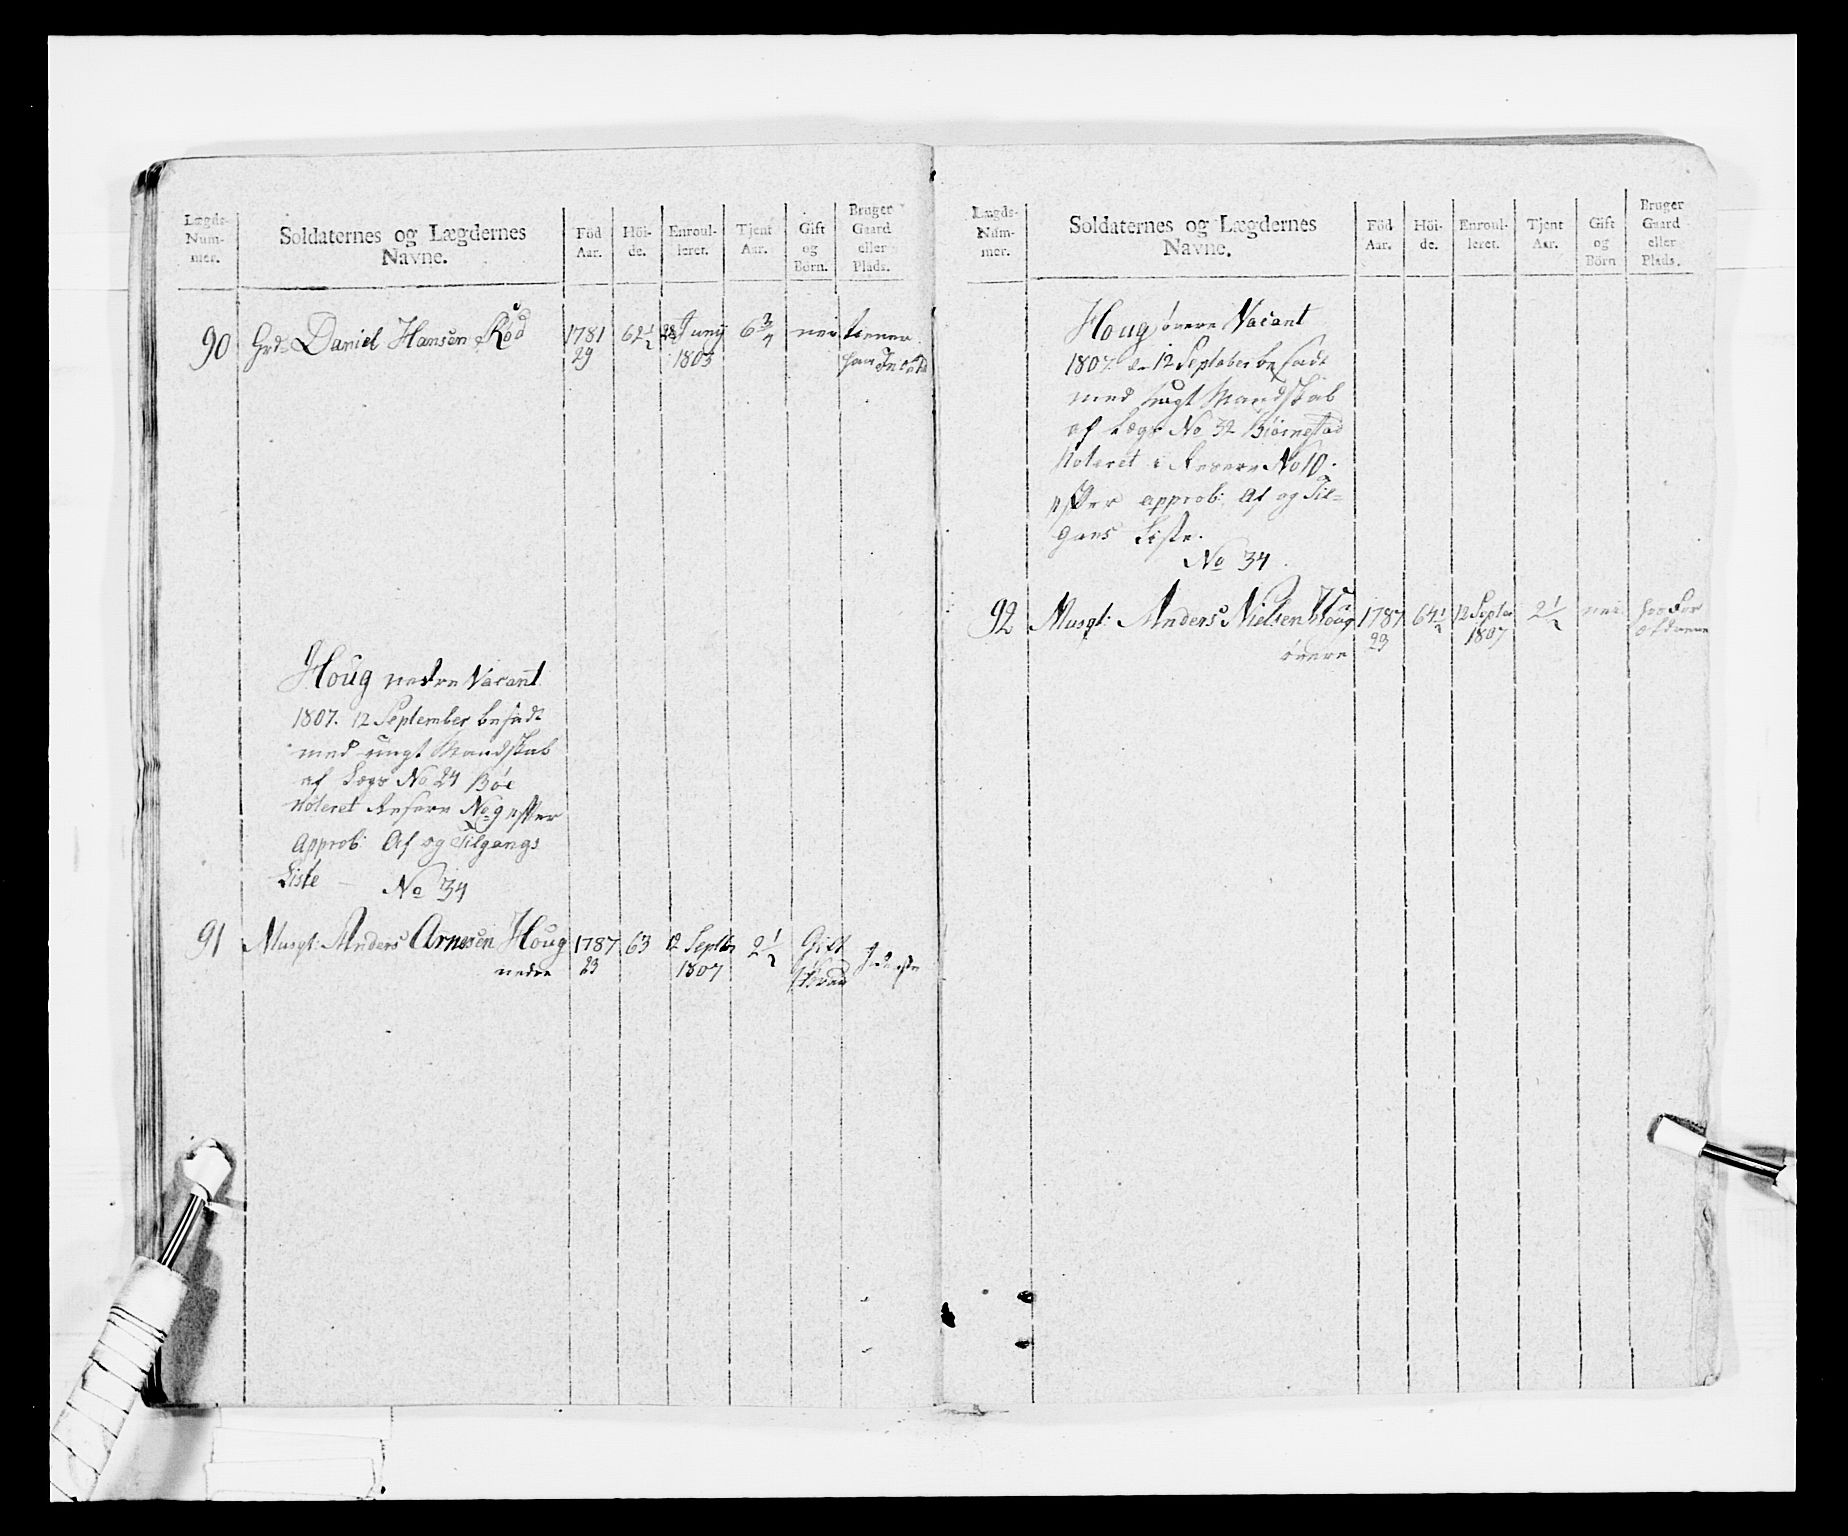 Lægds-
Num-
mer.
Soldaternes og Lægdernes
Navne.
Föd
Aar.
Höi-
de.
Enroul-
leret.
Tjent
Aar.
Gift
og
Börn.
Bruger
Gaard
eller
Plads.
90 Grd: Daniel Hansen Röd 1781 62½ 28 Juny 6¾ nei tiener
29 1803
Houg nedre Vacant
1807. 12 September besadt
med ungt Mandskab
af Lægd No 24 Böe
Noteret Reserve No 9 efter
Approb: Af og Tilgangs
Liste No 34
91 Musqt: Anders Arnesen Houg 1787 63 12 Septbr 2½ Gift
nedre 23 1807
Lægds-
Num-
mer.
Soldaternes og Lægdernes
Navne.
Föd
Aar.
Höi-
de.
Enroul-
leret.
Tjent
Aar.
Gift
og
Börn
Bruger
Gaard
eller
Plads.
Houg övere Vacant
1807. d. 12 September besadt
med ungt Mandskab
af Lægd No 32 Biörnestad
Noteret i Reserve No 10.
efter approb: Af og Til=
gans Liste.
No 34
92 Musqt: Anders Nielsen Houg 1787 64½ 12 Septbr 2½ nei
övere 23 1807